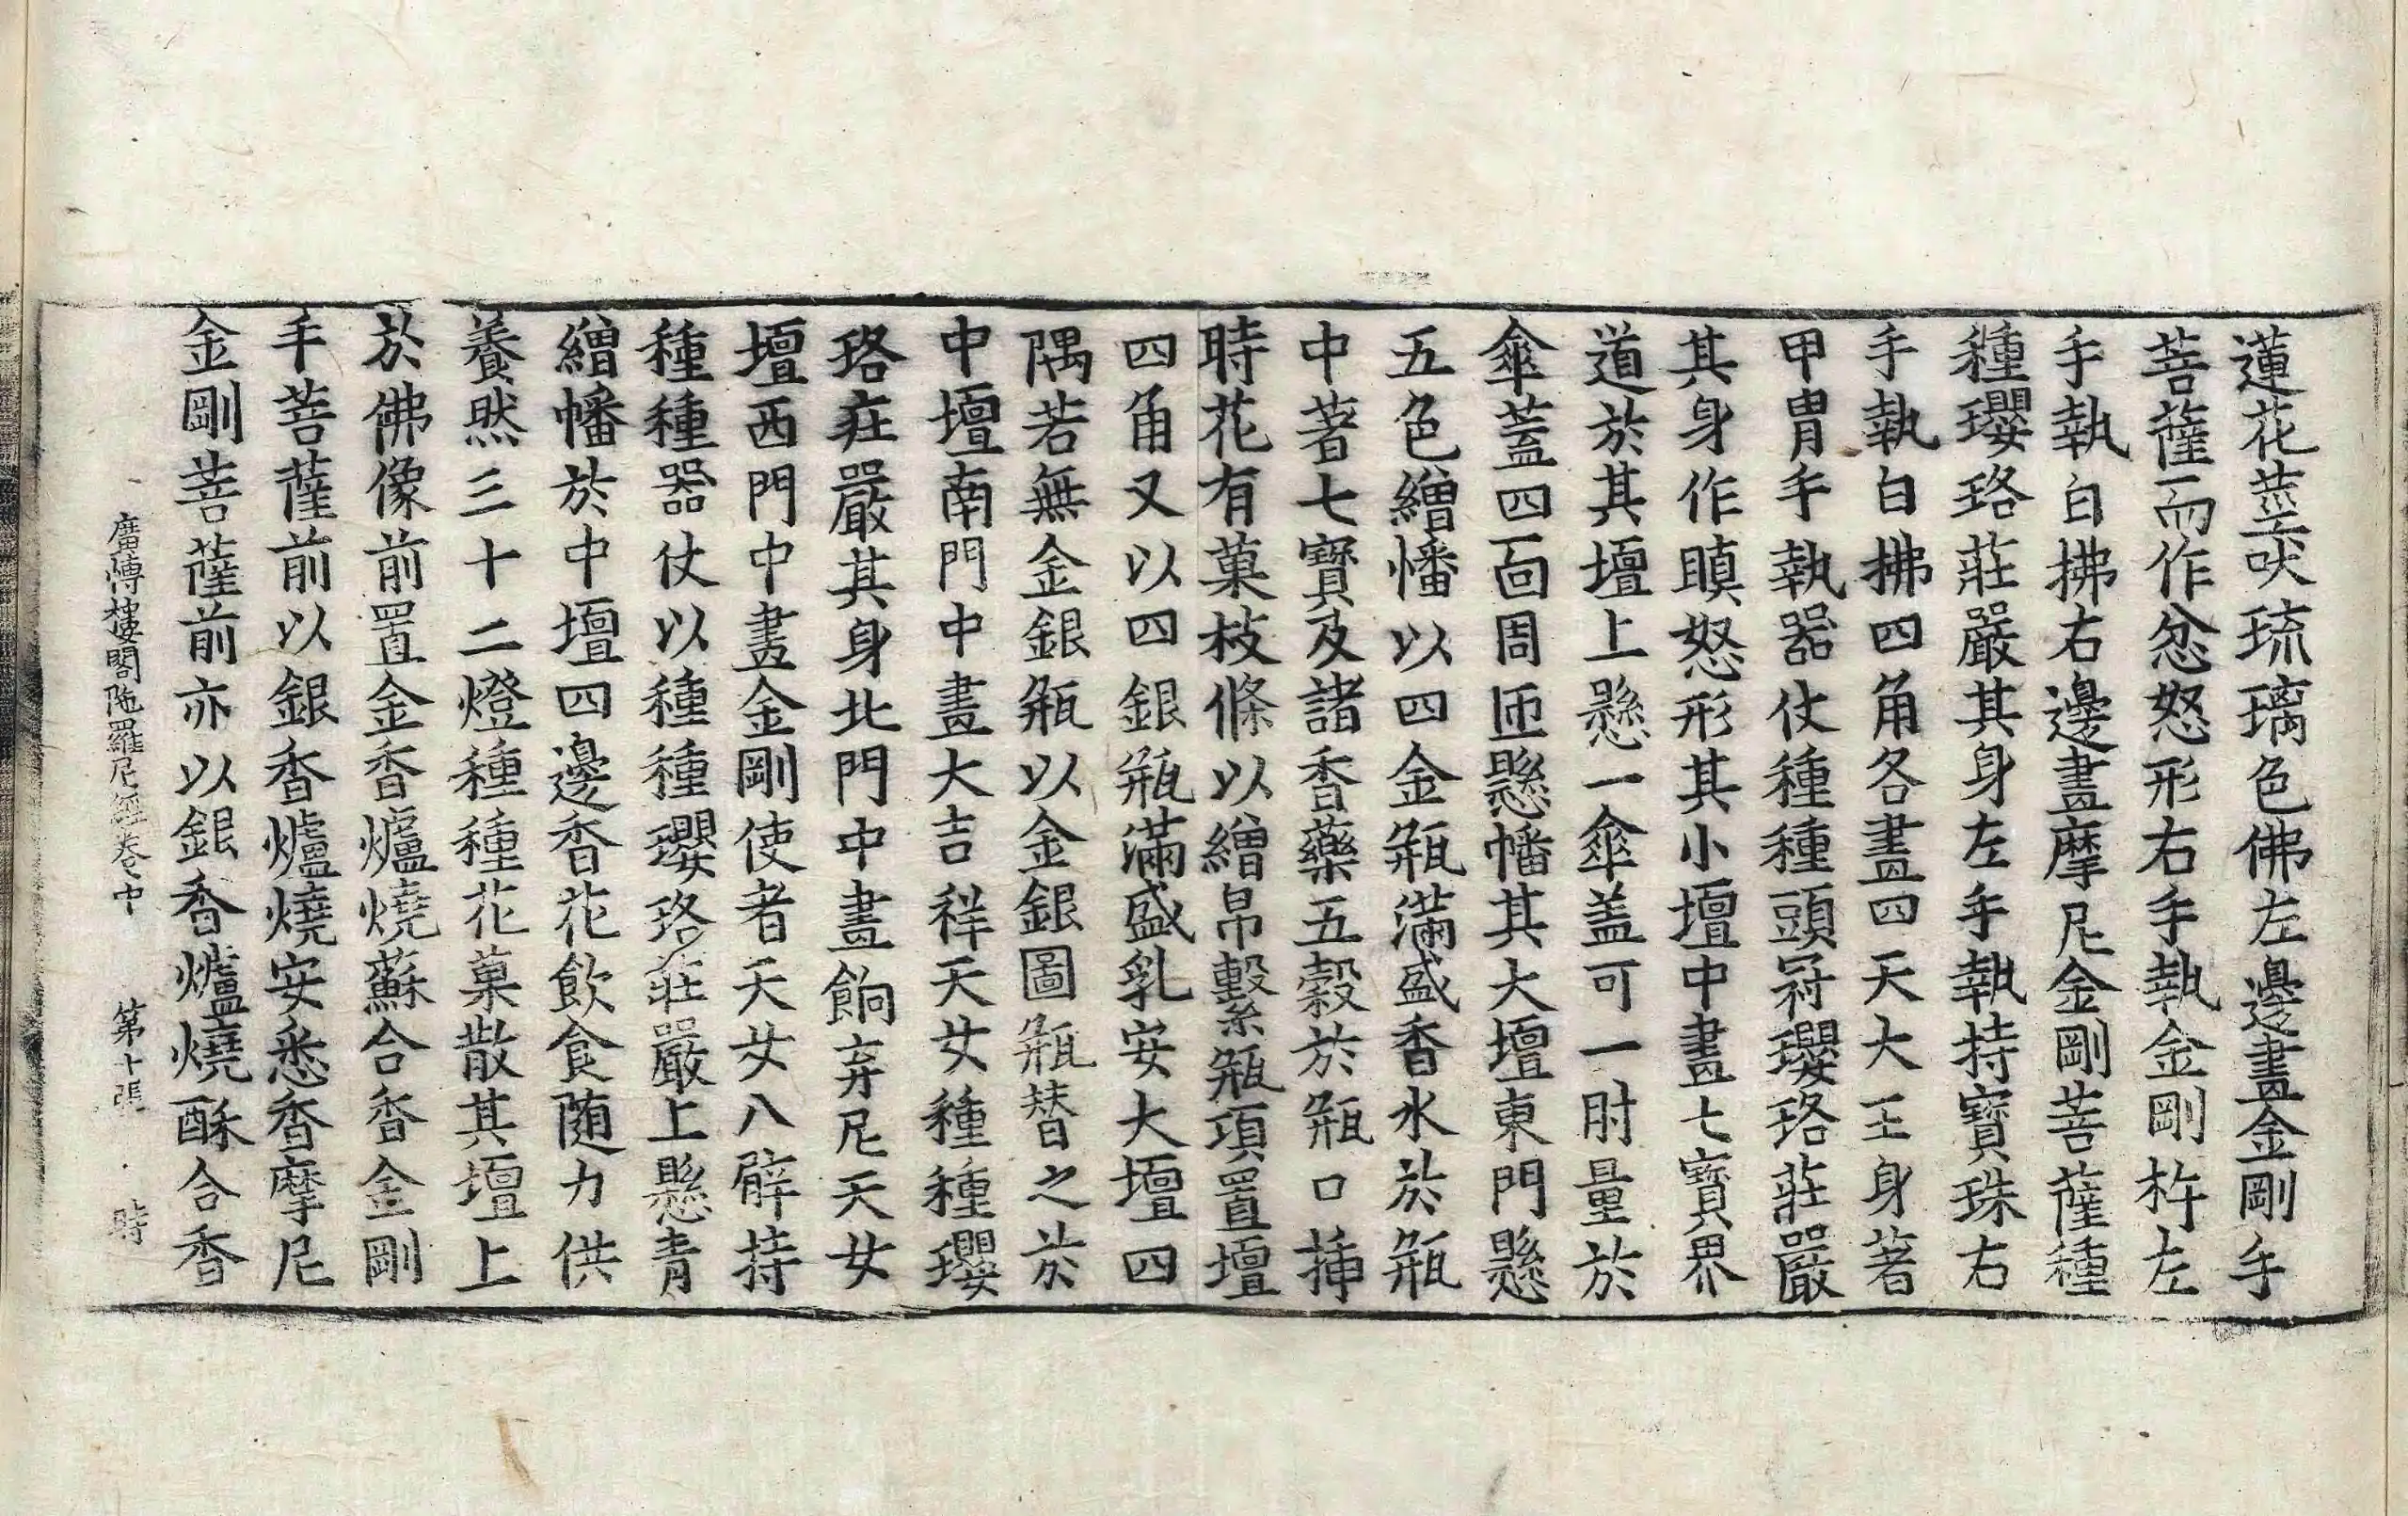 蓮花莖吠琉璃色佛左邊畫金剛手
菩薩而作忿怒形右手執金剛杵左
手執白拂右邊畫摩尼金剛菩薩種
種瓔珞莊嚴其身左手執持寶珠右
手執白拂四角各畫四天大王身著
甲胄手執器仗種種頭冠瓔珞莊嚴
其身作瞋怒形其小壇中畫七寶界
道於其壇上懸一傘盖可一肘量於
傘蓋四面周匝懸幡其大壇東門懸
五色繒幡以四金瓶滿盛香水於瓶
中著七寶及諸香藥五穀於瓶口插
時花有菓枝條以繒帛繫瓶項置壇
四角又以四銀瓶滿盛乳安大壇四
隅若無金銀瓶以金銀圖瓶替之於
中壇南門中畫大吉祥天女種種瓔
珞莊嚴其身北門中畫餉弃尼天女
壇西門中畫金剛使者天女八臂持
種種器仗以種種瓔珞莊嚴上懸青
繒幡於中壇四邊香花飲食随力供
養然三十二燈種種花菓散其壇上
於佛像前置金香爐燒蘇合香金剛
手菩薩前以銀香爐燒安悉香摩尼
金剛菩薩前亦以銀香爐燒酥合香
廣博樓閣陁羅尼經卷中 第十張 時